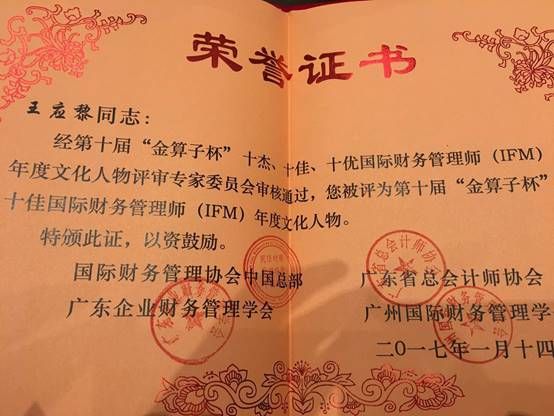 荣誉证书
王应黎同志：
经第十届“金算子杯”十杰、十佳、十优国际财务管理师（IFM）
年度文化人物评审专家委员会审核通过，您被评为第十届“金算子杯”
十佳国际财务管理师（IFM）年度文化人物。
特颁此证，以资鼓励。
国际财务管理协会中国总部
广东省总会计师协会
广东企业财务管理学会
广州国际财务管理学
二〇一七年一月十四